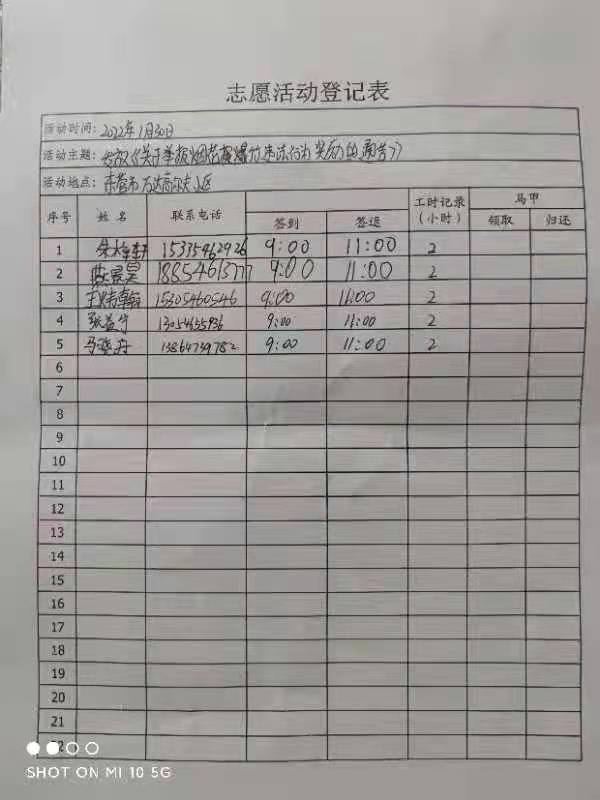 志愿活动登记表
活动时间：2022年1月30日
活动主题：发放《关于举报烟花爆竹违法行为奖励的通告》
活动地点：东营市万达高尔夫小区
序号 姓名 联系电话 签到 签退 工时记录（小时） 马甲 领取 归还
1 15335462926 9:00 11:00 2
2 18854613777 9:00 11:00 2
3 15305460546 9:00 11:00 2
4 张益宁 13054655936 9:00 11:00 2
5 马 13864739782 9:00 11:00 2
6
7
8
9
10
11
12
13
14
15
16
17
18
19
20
21
22
SHOT ON MI 10 5G